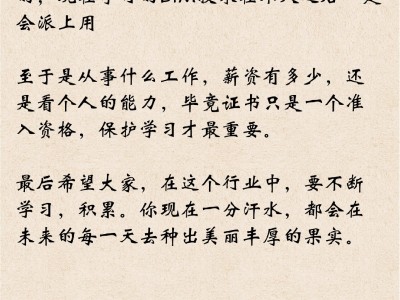 会派上用
至于是从事什么工作，薪资有多少，还
是看个人的能力，毕竟证书只是一个准
入资格，保护学习才最重要。
最后希望大家，在这个行业中，要不断
学习，积累。你现在一分汗水，都会在
未来的每一天去种出美丽丰厚的果实。